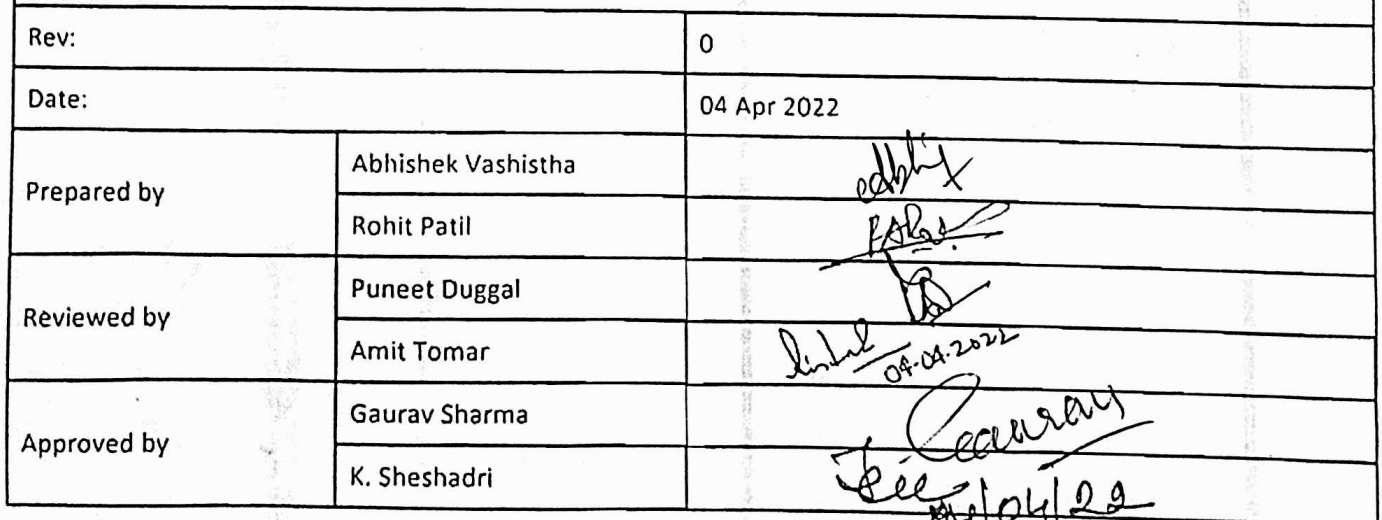 Rev: 0
Date: 04 Apr 2022
Prepared by
Abhishek Vashistha
Rohit Patil
Reviewed by
Puneet Duggal
Amit Tomar
04-04-2022
Approved by
Gaurav Sharma
Gaurav
K. Sheshadri
/04/22